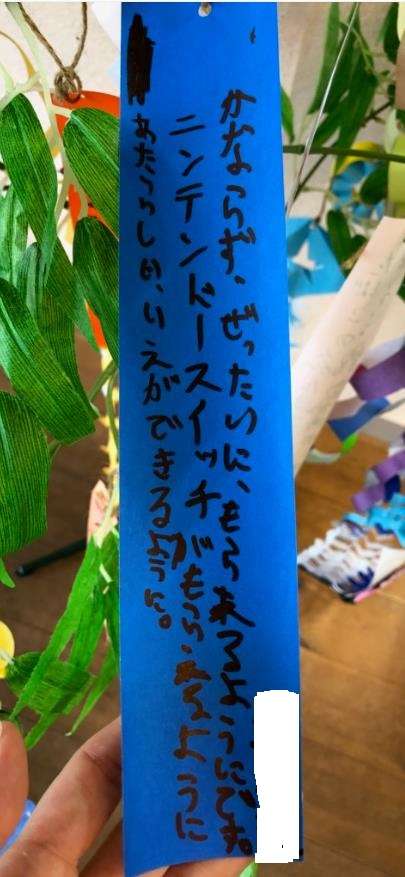 かならず、ぜったいに、もら来るようにです。
ニンテンドースイッチがもらえるように
あたらしい、いえができるように。